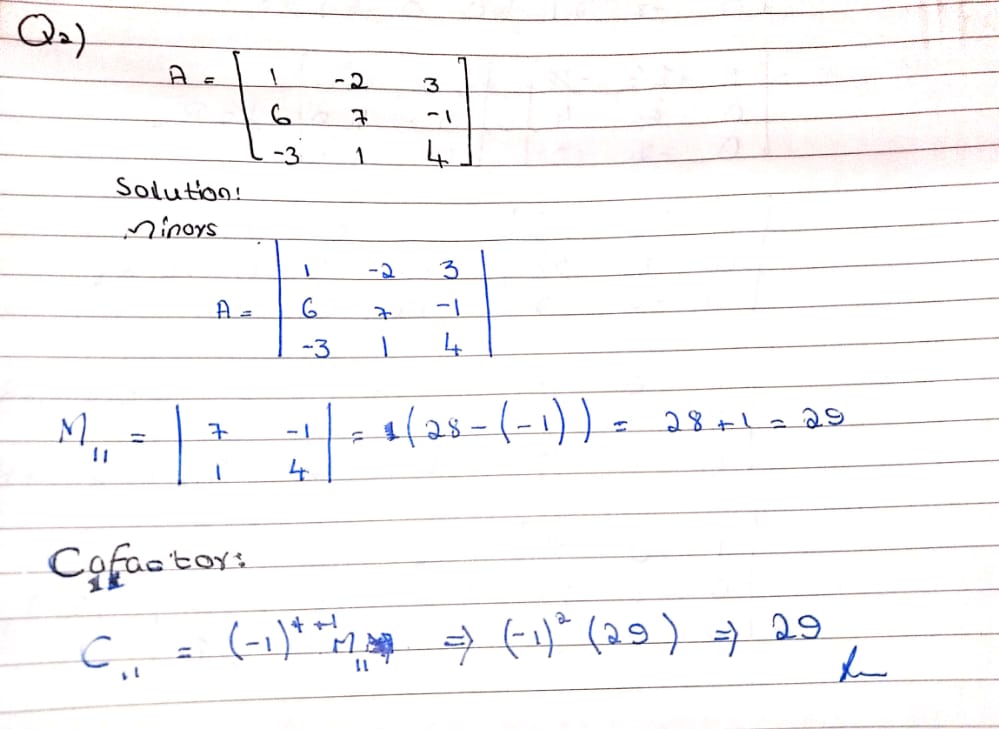 Q2)
A = [ 1 -2 3
6 7 -1
-3 1 4 ]
Solution:
Minors
A = | 1 -2 3 |
| 6 7 -1 |
| -3 1 4 |
M₁₁ = | 7 -1 | = (28 - (-1)) = 28 + 1 = 29
| 1 4 |
Cofactor:
C₁₁ = (-1)¹⁺¹ M₁₁ ⇒ (-1)² (29) ⇒ 29